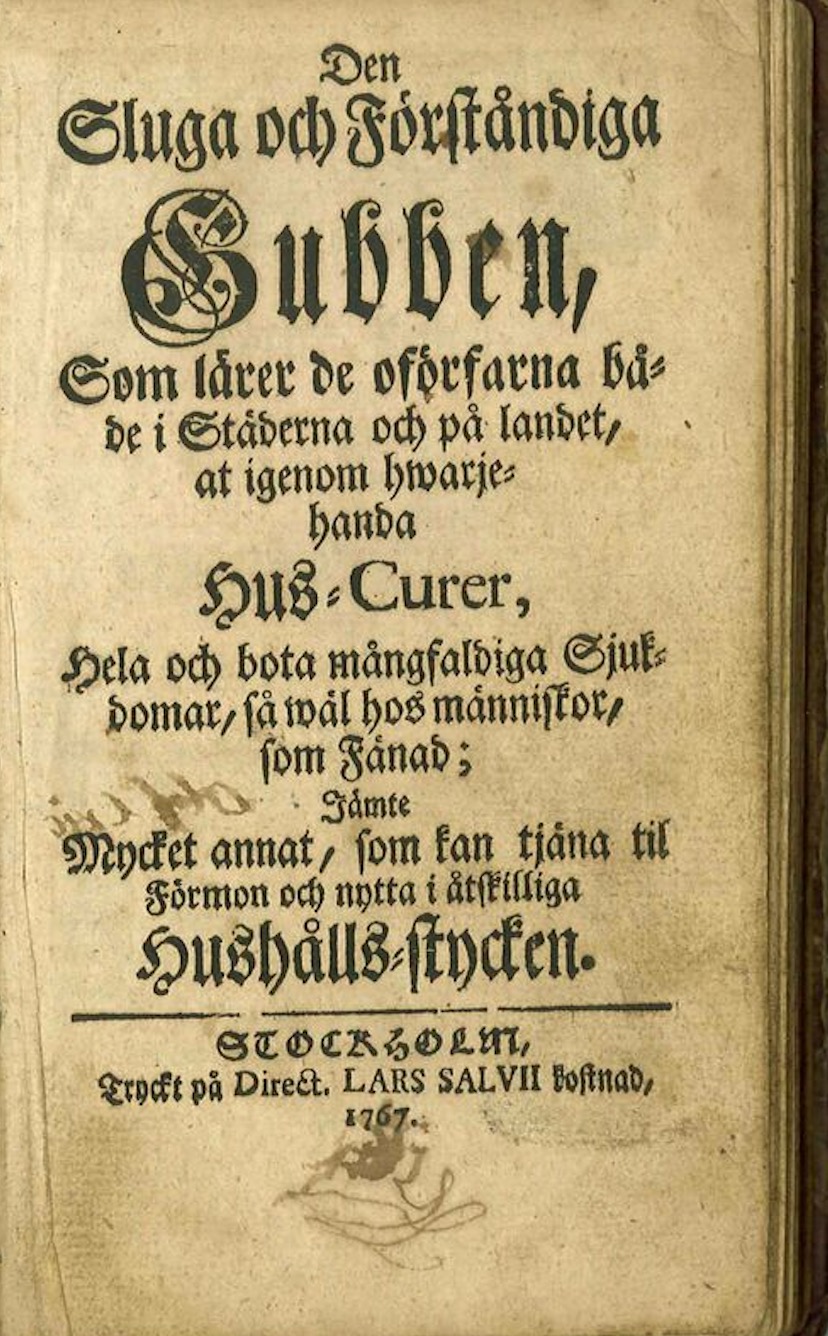 Den
Sluga och Förståndiga
Gubben,
Som lärer de oförfarna bå-
de i Städerna och på landet,
at igenom hwarje-
handa
Hus-Curer,
Hela och bota mångfaldiga Sjuk-
domar, så wäl hos människor,
som Fänad;
Jämte
Mycket annat, som kan tjäna til
Förmon och nytta i åtskilliga
Hushålls-stycken.
STOCKHOLM,
Tryckt på Direct. LARS SALVII kostnad,
1767.